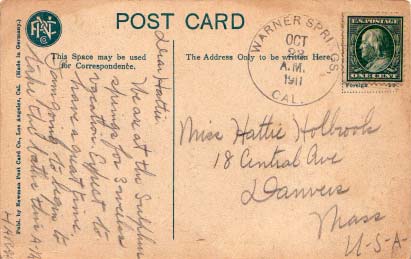 POST CARD
This Space may be used
for Correspondence.
The Address Only to be written Here.
WARNER SPRINGS
OCT
A.M.
1911
CAL.
U.S. POSTAGE
ONE CENT
Dear Hattie.
We are at the Sulphur
springs for 3 weeks
vacation. Expect to
have a great time.
Am going to begin to
take the baths this A.M.
Miss Hattie Holbrook
18 Central Ave
Danvers
Mass
U-S-A-
Publ. by Newman Post Card Co., Los Angeles, Cal. (Made in Germany.)